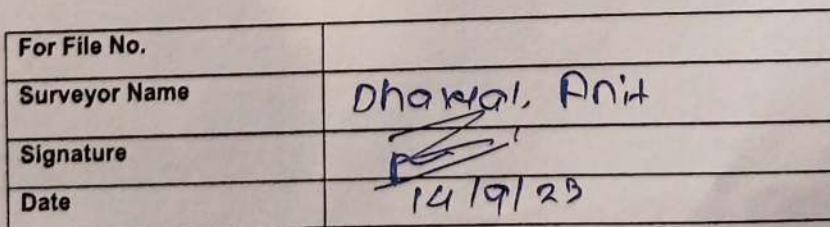 For File No.
Surveyor Name Dhawal, Anit
Signature
Date 14/9/23